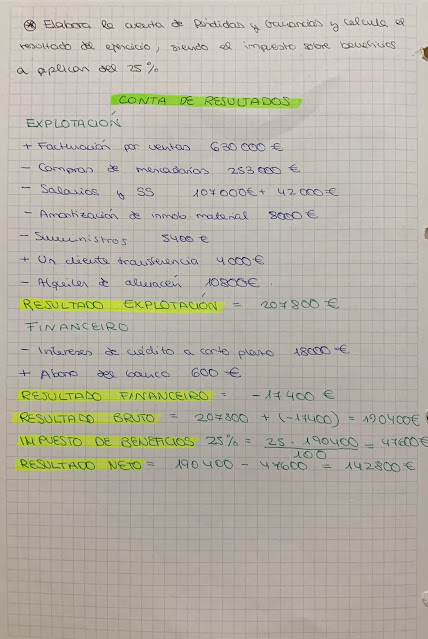 ⊛ Elabora la cuenta de Perdidas y Ganancias y calcula el
resultado del ejercicio, siendo el impuesto sobre beneficios
a aplicar del 25%
CONTA DE RESULTADOS
EXPLOTACIÓN
+ Facturación por ventas 630000€
- Compras de mercadorías 253000€
- Salarios y SS 107000€ + 42000€
- Amortización de inmob. material 8000€
- Suministros 5400€
+ Un cliente transferencia 4000€
- Alquiler de almacén 10800€
RESULTADO EXPLOTACIÓN = 207800€
FINANCEIRO
- Intereses de crédito a corto plazo 18000€
+ Abono del banco 600€
RESULTADO FINANCEIRO = -17400€
RESULTADO BRUTO = 207800 + (-17400) = 190400€
IMPUESTO DE BENEFICIOS 25% = 25 · 190400 / 100 = 47600€
RESULTADO NETO = 190400 - 47600 = 142800€